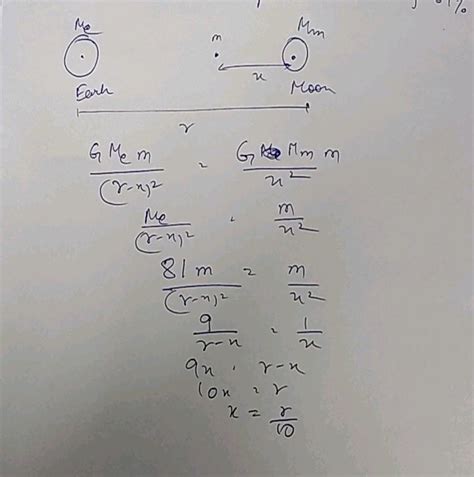 81%
Me
m
Mm
x
Earth
Moon
r
G Me m / (r-x)² = G Mm m / x²
Me / (r-x)² = m / x²
81 m / (r-x)² = m / x²
9 / r-x = 1 / x
9x = r-x
10x = r
x = r / 10